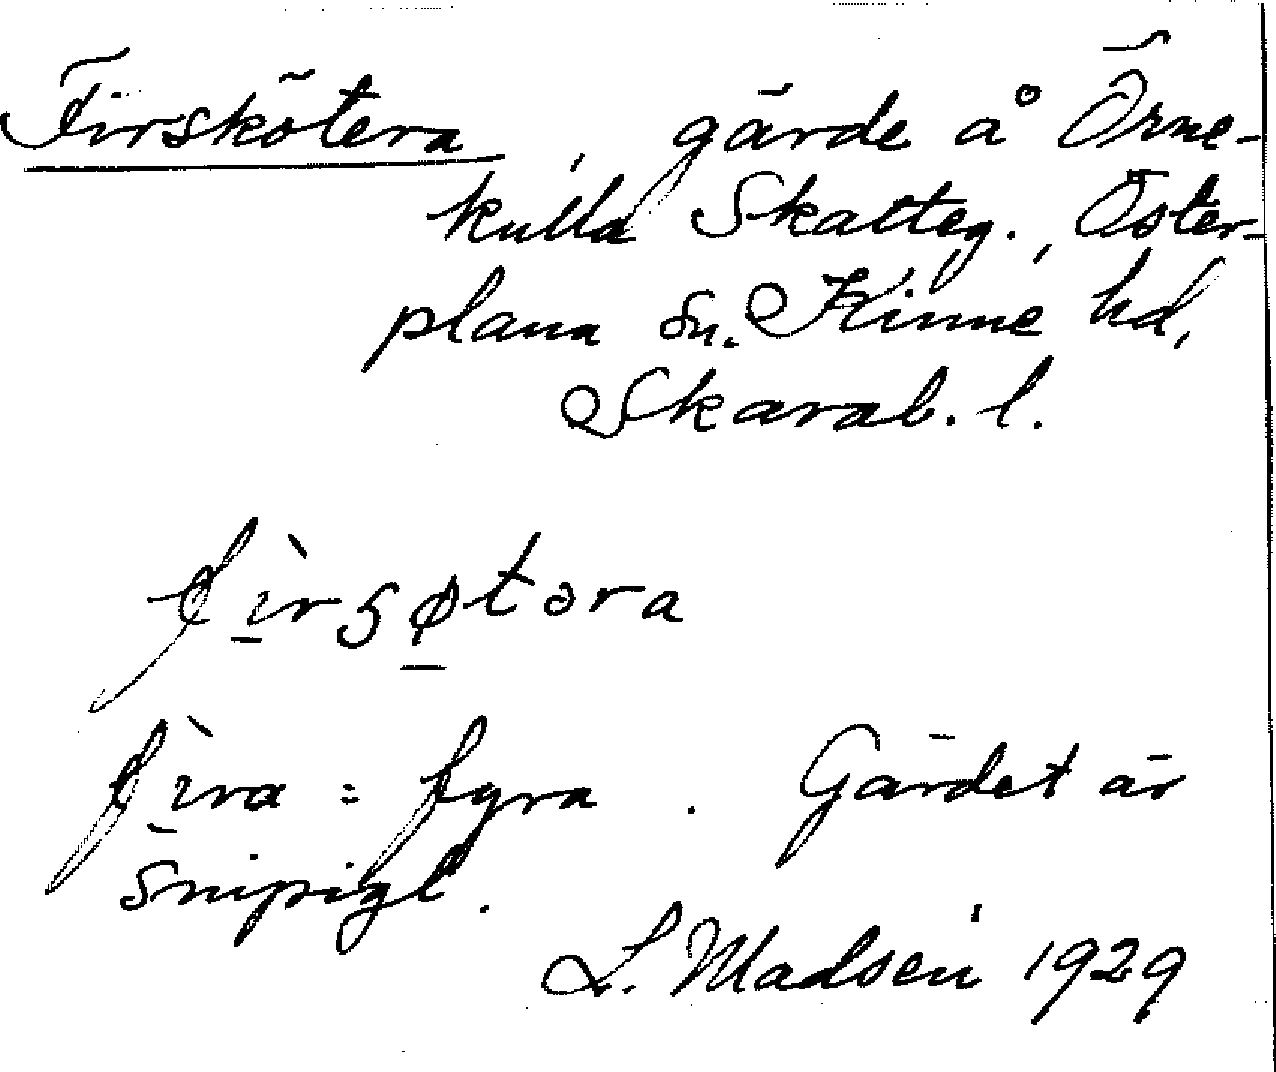 Firskötera, gärde å Örne-
kulla Skatteg., Öster-
plana sn. Kinne hd,
Skarab. l.
fìrsøtəra
fìra = fyra. Gärdet är
snipigt.
L. Madsén 1929